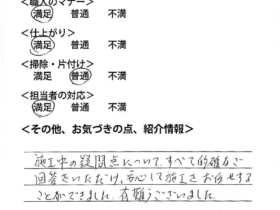 <職人のマナー>
満足 普通 不満
<仕上がり>
満足 普通 不満
<掃除・片付け>
満足 普通 不満
<担当者の対応>
満足 普通 不満
<その他、お気づきの点、紹介情報>
施工中の疑問点について、すべて的確なご
回答をいただけ、安心して施工をお任せする
ことができました。有難うございました。